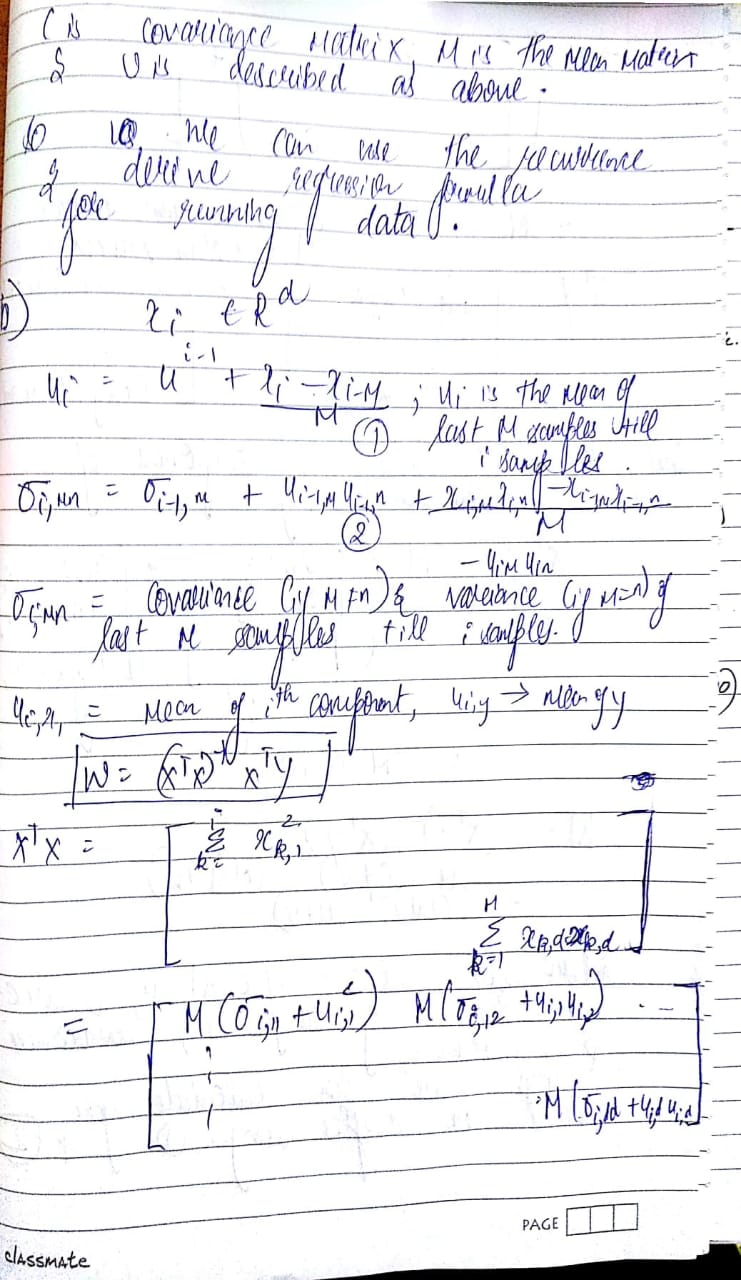 C is covariance Matrix, M is the Mean Matrix
& U is described as above.
so we can use the recurrence
& derive regression formulla
for running data.
b) x_i ∈ R^d
u_i = u^{i-1} + (x_i - x_{i-M})/M ; u_i is the mean of
① last M samples till
i samples.
σ_{i,mn} = σ_{i-1,m} + u_{i-1,m} u_{i-1,n} + (x_{i,m} x_{i,n} - x_{i-m} x_{i-m,n})/M
②
- u_{im} u_{in}
σ_{i,mn} = Covariance (if m≠n) & variance (if m=n) of
last M samples till i samples.
u_{i,x_i} = Mean of i^th component, u_{i,y} → mean of y
W = (X^T X)^{-1} X^T y
X^T X = [ Σ_{k=}^{i} x²_{k,1}
Σ_{k=1}^{M} x_{k,d} x_{k,d} ]
= [ M(σ_{i,11} + u_{i,1}²) M(σ_{i,12} + u_{i,1} u_{i,2}) . - -
M(σ_{i,dd} + u_{i,d} u_{i,d}) ]
PAGE
classmate